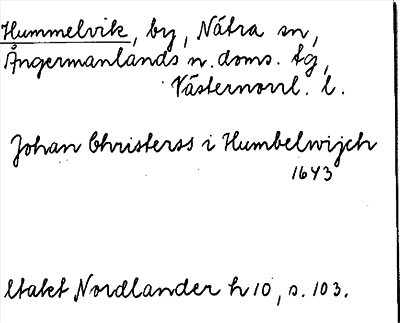 Hummelvik, by, Nätra sn,
Ångermanlands n. doms. tg,
Västernorrl. l.
Johan Christerss i Humbelwijch
1643
Utakt Nordlander h 10, s. 103.